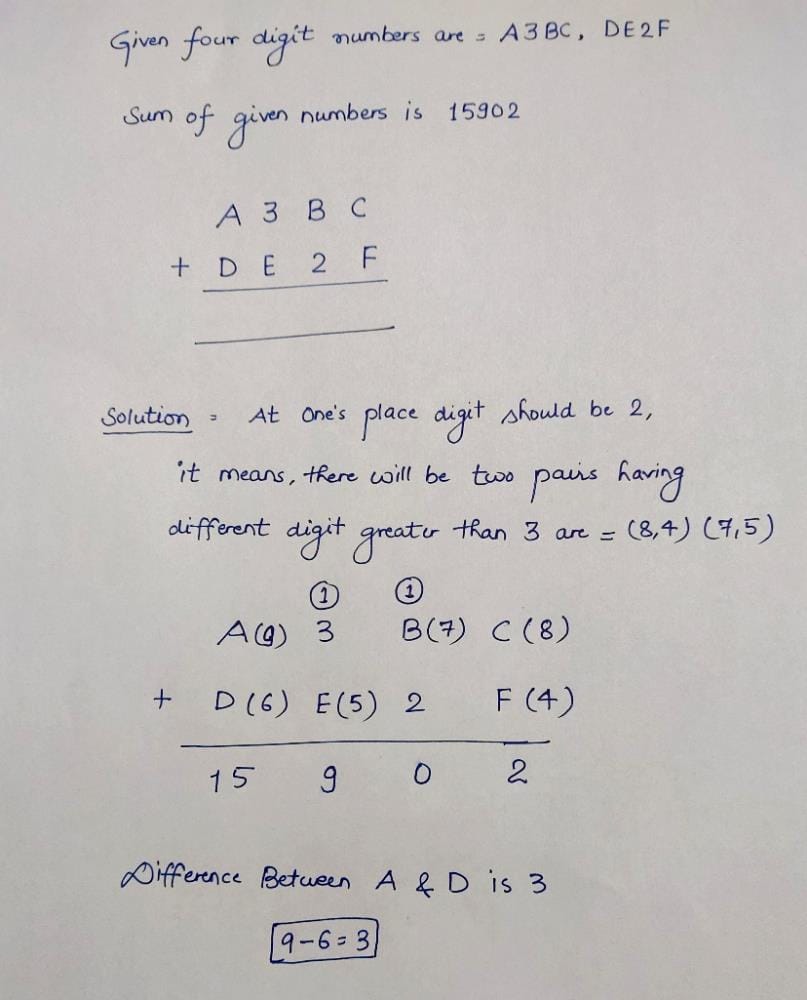 Given four digit numbers are = A3BC, DE2F
Sum of given numbers is 15902
A 3 B C
+ D E 2 F
Solution = At One's place digit should be 2,
it means, there will be two pairs having
different digit greater than 3 are = (8,4) (7,5)
① ①
A(9) 3 B(7) C(8)
+ D(6) E(5) 2 F(4)
15 9 0 2
Difference Between A & D is 3
9-6=3